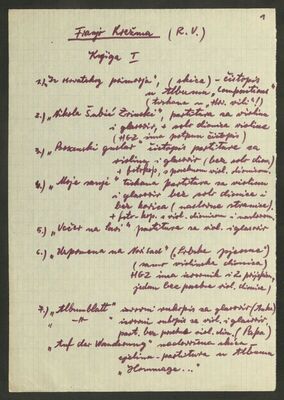 1
Franjo Krežma (R.V.)
Knjiga I
1.) „Iz Hrvatskog primorja", (skica) – čistopis
u Albumu „Compositions"
(tiskana u „Hrv. vili"!)
2.) „Nikola Šubić Zrinski" partitura za violinu
i glasovir, + solo dionica violine
(HGZ ima potpun čistopis)
3.) „Bosanski guslar" čistopis partiture za
violinu i glasovir (bez solo dion.)
+ fotokop. s posebnom viol. dionicom.
4.) „Moje sanje" tiskana partitura za violinu
i glasovir bez solo dionice i
bez korica (naslovne stranice).
+ foto-kop. s viol. dionicom i naslovom.
5.) „Večer na Savi" partitura za viol. i glasovir
6.) „Uspomena na" („Srbske pjesme")
(samo violinska dionica)
HGZ ima izvornik i 2 prijepisa,
jedan bez posebne viol. dionice)
7.) „Albumblatt" izvorni rukopis za glasovir
–"– izvorni rukopis za viol. i glasovir
part. bez posebne viol. dion. (Papa)
„Auf der Wanderung" nedovršena skica
cjelina – partitura u Albumu
„Hommage..."